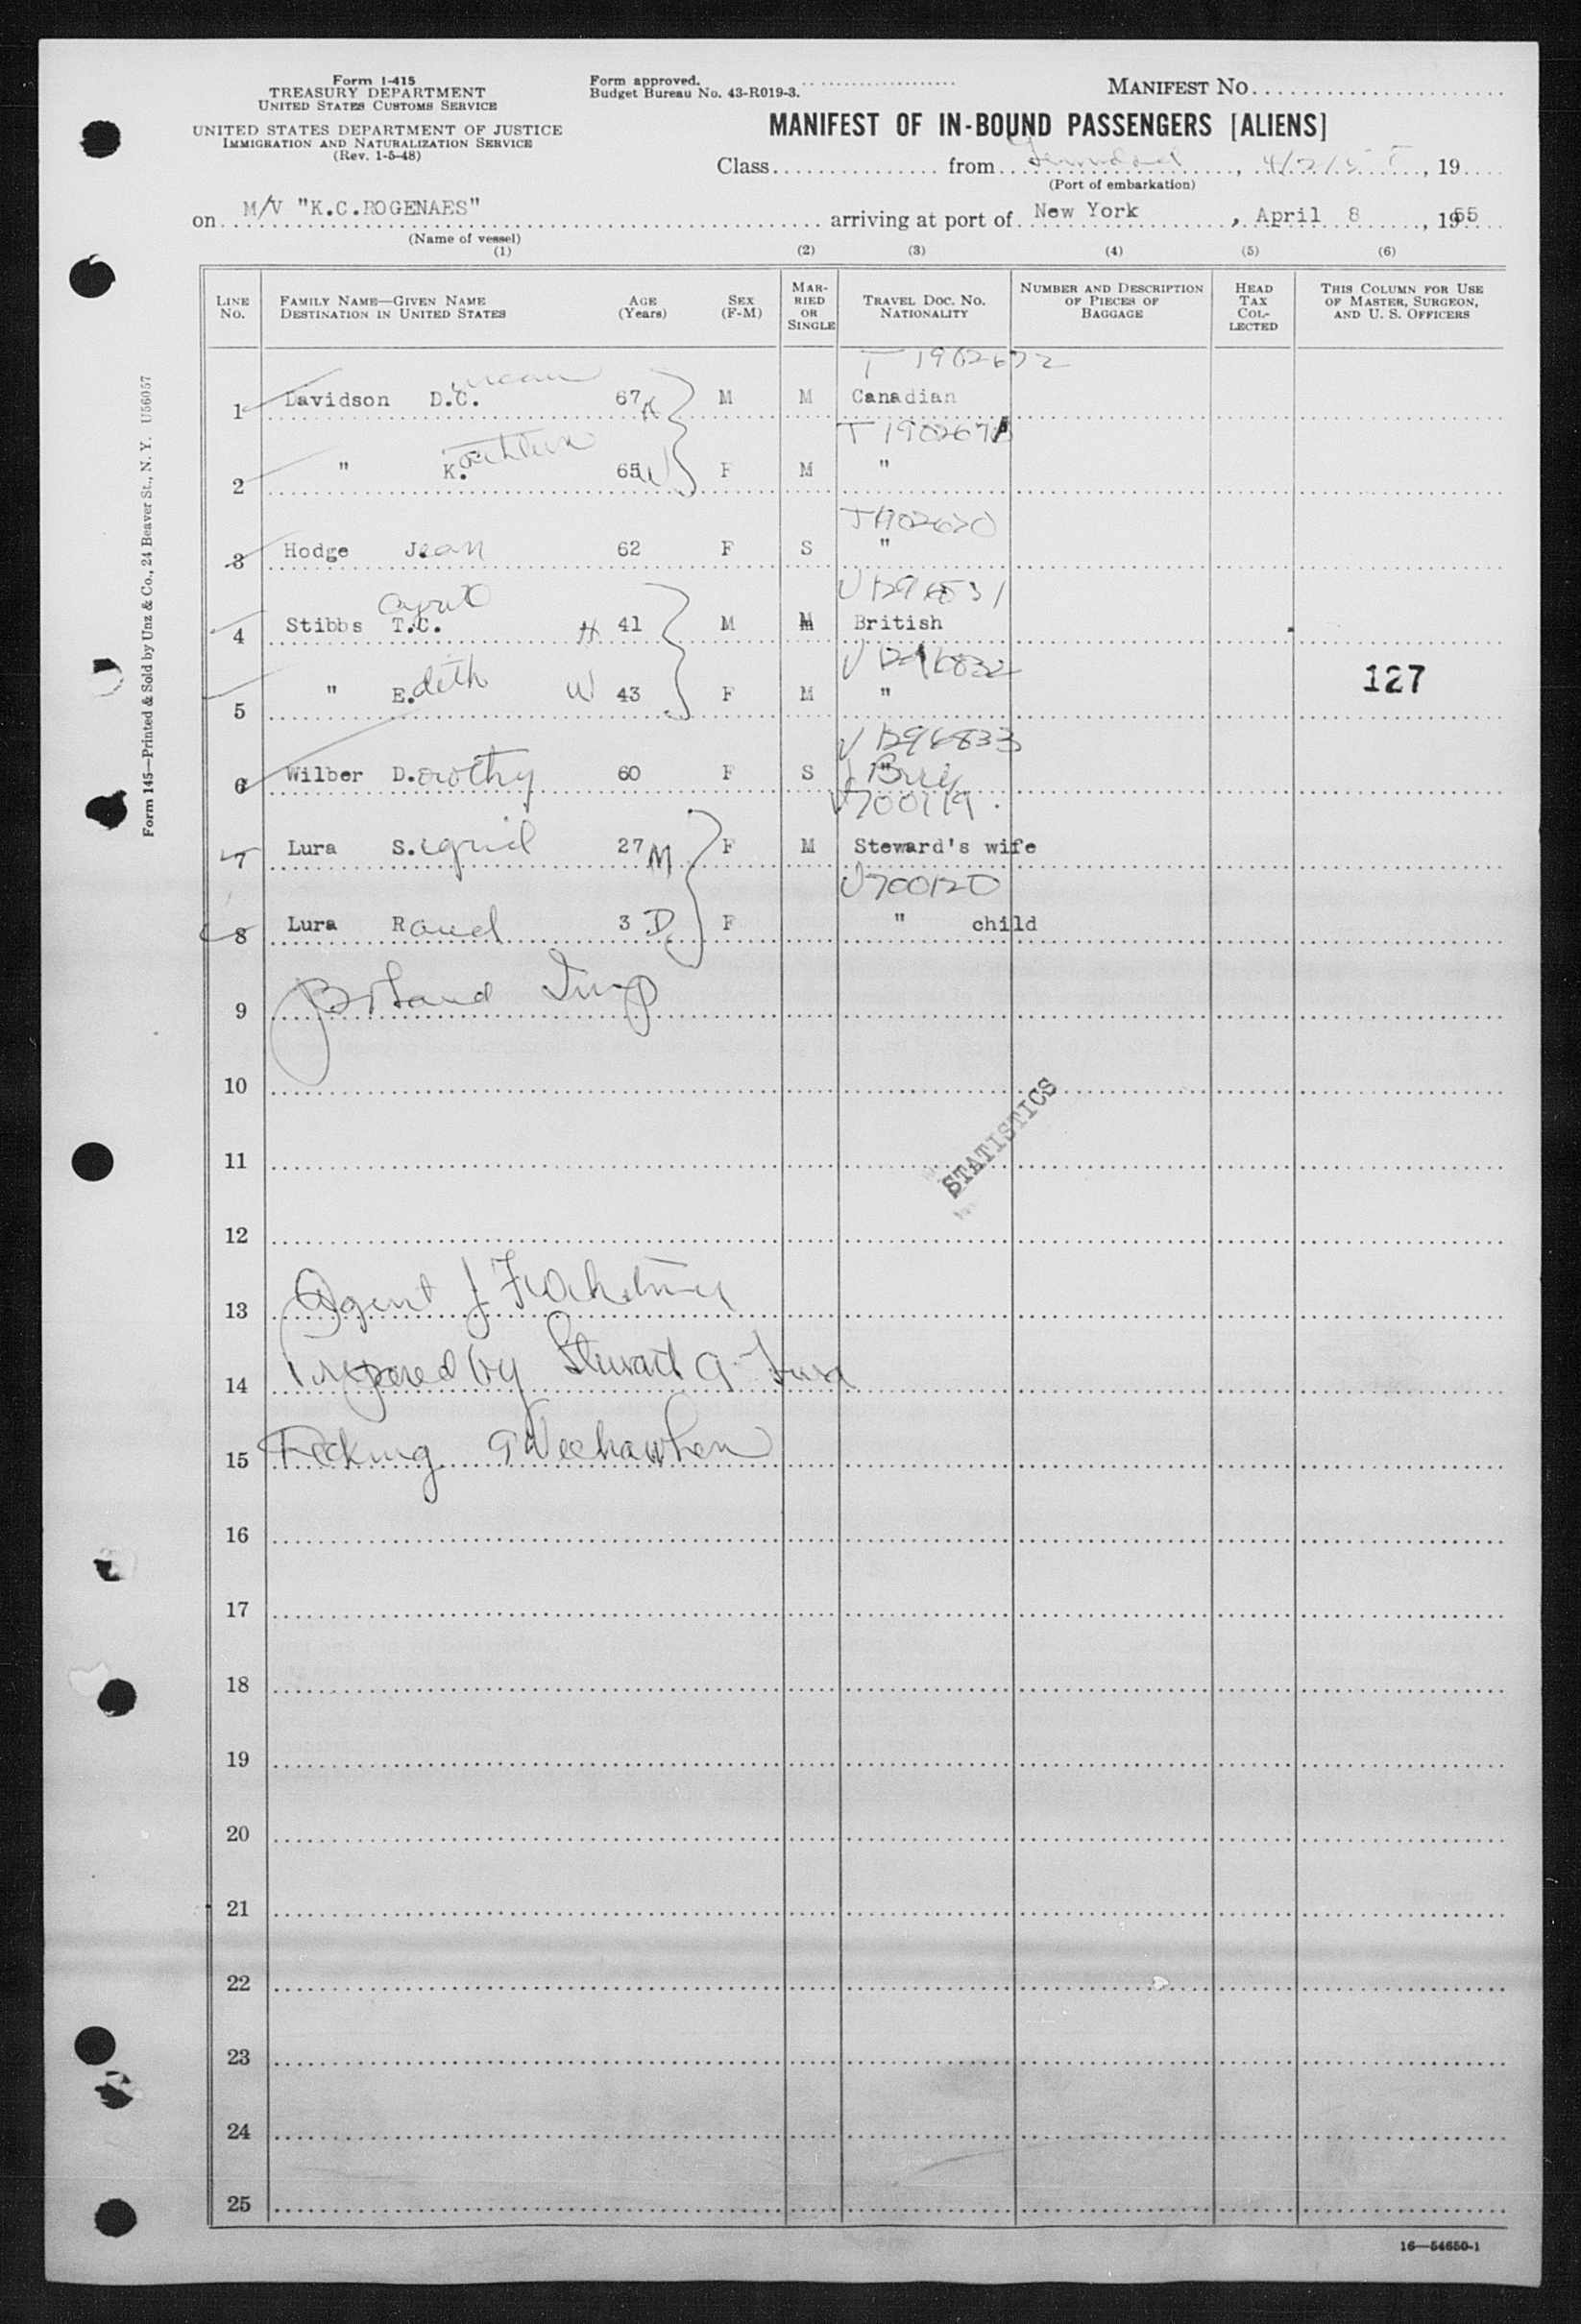 Form I-415
TREASURY DEPARTMENT
UNITED STATES CUSTOMS SERVICE
UNITED STATES DEPARTMENT OF JUSTICE
IMMIGRATION AND NATURALIZATION SERVICE
(Rev. 1-5-48)
Form approved.
Budget Bureau No. 43-R019-3.
MANIFEST NO.
MANIFEST OF IN-BOUND PASSENGERS [ALIENS]
Class from , 19
(Port of embarkation)
on M/V "K.C.ROGENAES" arriving at port of New York, April 8, 1955
(Name of vessel)
(1) (2) (3) (4) (5) (6)
LINE NO. FAMILY NAME—GIVEN NAME DESTINATION IN UNITED STATES AGE (Years) SEX (F-M) MARRIED OR SINGLE TRAVEL DOC. NO. NATIONALITY NUMBER AND DESCRIPTION OF PIECES OF BAGGAGE HEAD TAX COLLECTED THIS COLUMN FOR USE OF MASTER, SURGEON, AND U. S. OFFICERS
T 1902672
1 Davidson D.C. 67 H M M Canadian
2 " K. 65 W F M "
3 Hodge Jean 62 F S "
4 Stibbs T.C. H 41 M M British
V 1296832
5 " Edith W 43 F M " 127
V 1296833
6 Wilber Dorothy 60 F S "
V700119
7 Lura Sigrid 27 M F M Steward's wife
V700120
8 Lura Raud 3 D F " child
9
10
11
STATISTICS
12
13 Agent J
14 Prepared by Stewart A
15 Weehawken
16
17
18
19
20
21
22
23
24
25
16—54650-1
Form 145—Printed & Sold by Unz & Co., 24 Beaver St., N. Y. U56057